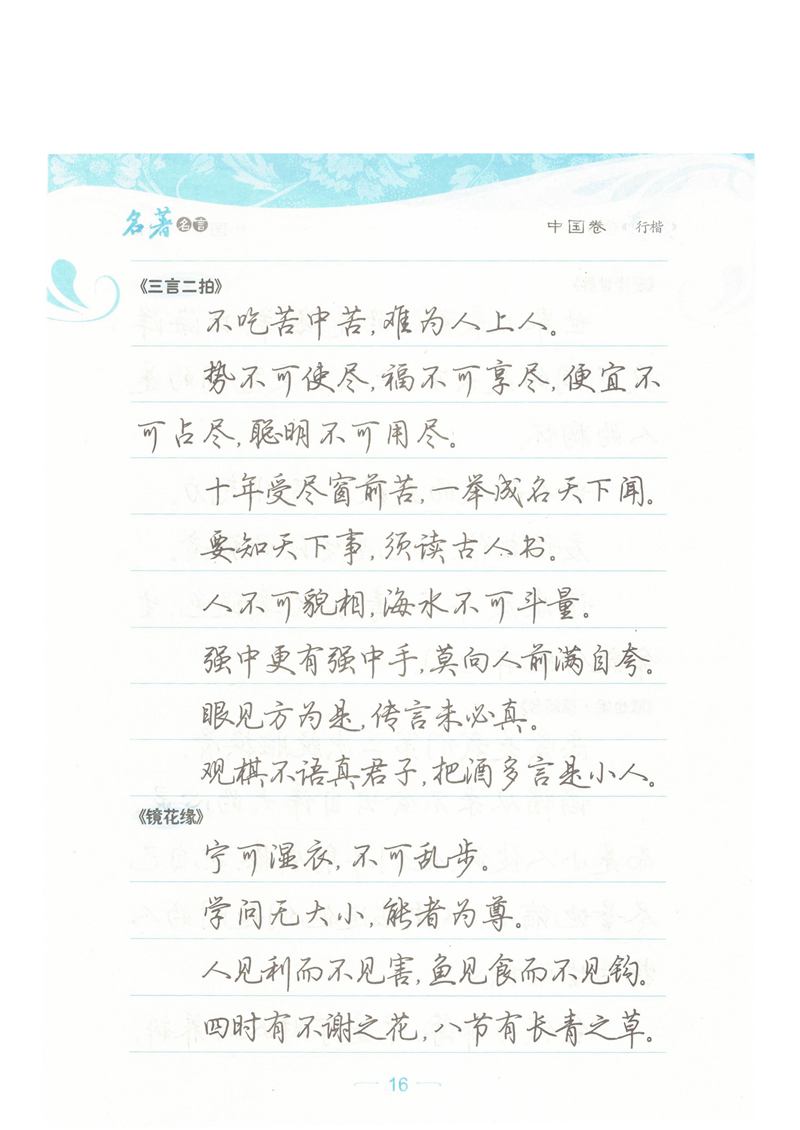 名著名言
中国卷 (行楷)
《三言二拍》
不吃苦中苦,难为人上人。
势不可使尽,福不可享尽,便宜不
可占尽,聪明不可用尽。
十年受尽窗前苦,一举成名天下闻。
要知天下事,须读古人书。
人不可貌相,海水不可斗量。
强中更有强中手,莫向人前满自夸。
眼见方为是,传言未必真。
观棋不语真君子,把酒多言是小人。
《镜花缘》
宁可湿衣,不可乱步。
学问无大小,能者为尊。
人见利而不见害,鱼见食而不见钩。
四时有不谢之花,八节有长青之草。
16